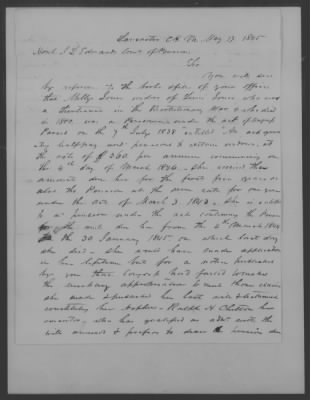 Lancaster C.H. Va. May 13. 1845
Honl. J L Edwards Comr. of Pensions
Sir
You will see
by reference to the books office of your office
that Milly Jones widow of Jones who was
a Lieutenant in the Revolutionary War & who died
in was a Pensioner under the act of Congress
Passed on the 7th July 1838 entitled "An act gran-
ting half pay and pensions to certain widows, at
the rate of $ 320 per annum commencing on
the 4th day of March 1836. She received this
annual due her for the first five years &
also the Pension at the same rate for one year
under the Act of March 3. 1843. She is entitled
to a pension under the act continuing the Pension
for the and due her from the 4th March 1844
to the 30 January 1845 on which last day
she died. She would have made application
in her lifetime but for a notice published
by you that Congress had failed to make
the necessary appropriation to meet those claims
she made & published her last will & testament
constituting her nephew Ralph H. Chilton her
executor, who has qualified as with the
will annexed & proposes to draw the pension due